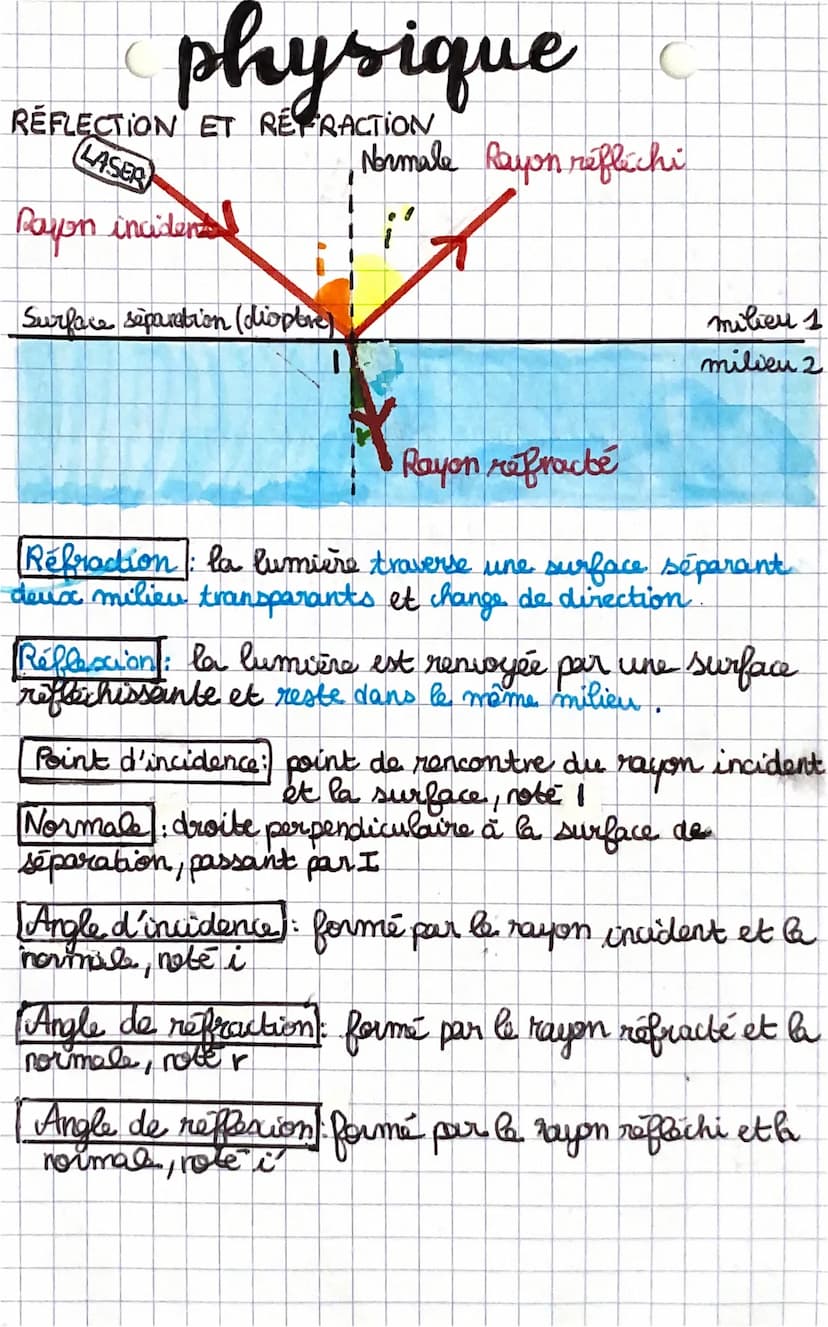 physique
RÉFLECTION ET RÉFRACTION
LASER
Normale
Rayon réfléchi
Rayon incident
i
i'
Surface séparation (dioptre)
milieu 1
I
milieu 2
r
Rayon réfracté
Réfraction : la lumière traverse une surface séparant
deux milieu transparants et change de direction.
Réflexion : la lumière est renvoyée par une surface
réfléchissante et reste dans le même milieu.
Point d'incidence : point de rencontre du rayon incident
et la surface, noté I
Normale : droite perpendiculaire à la surface de
séparation, passant par I
Angle d'incidence : formé par le rayon incident et la
normale, noté i
Angle de réfraction : formé par le rayon réfracté et la
normale, noté r
Angle de réflexion : formé par le rayon réfléchi et la
normale, noté i'